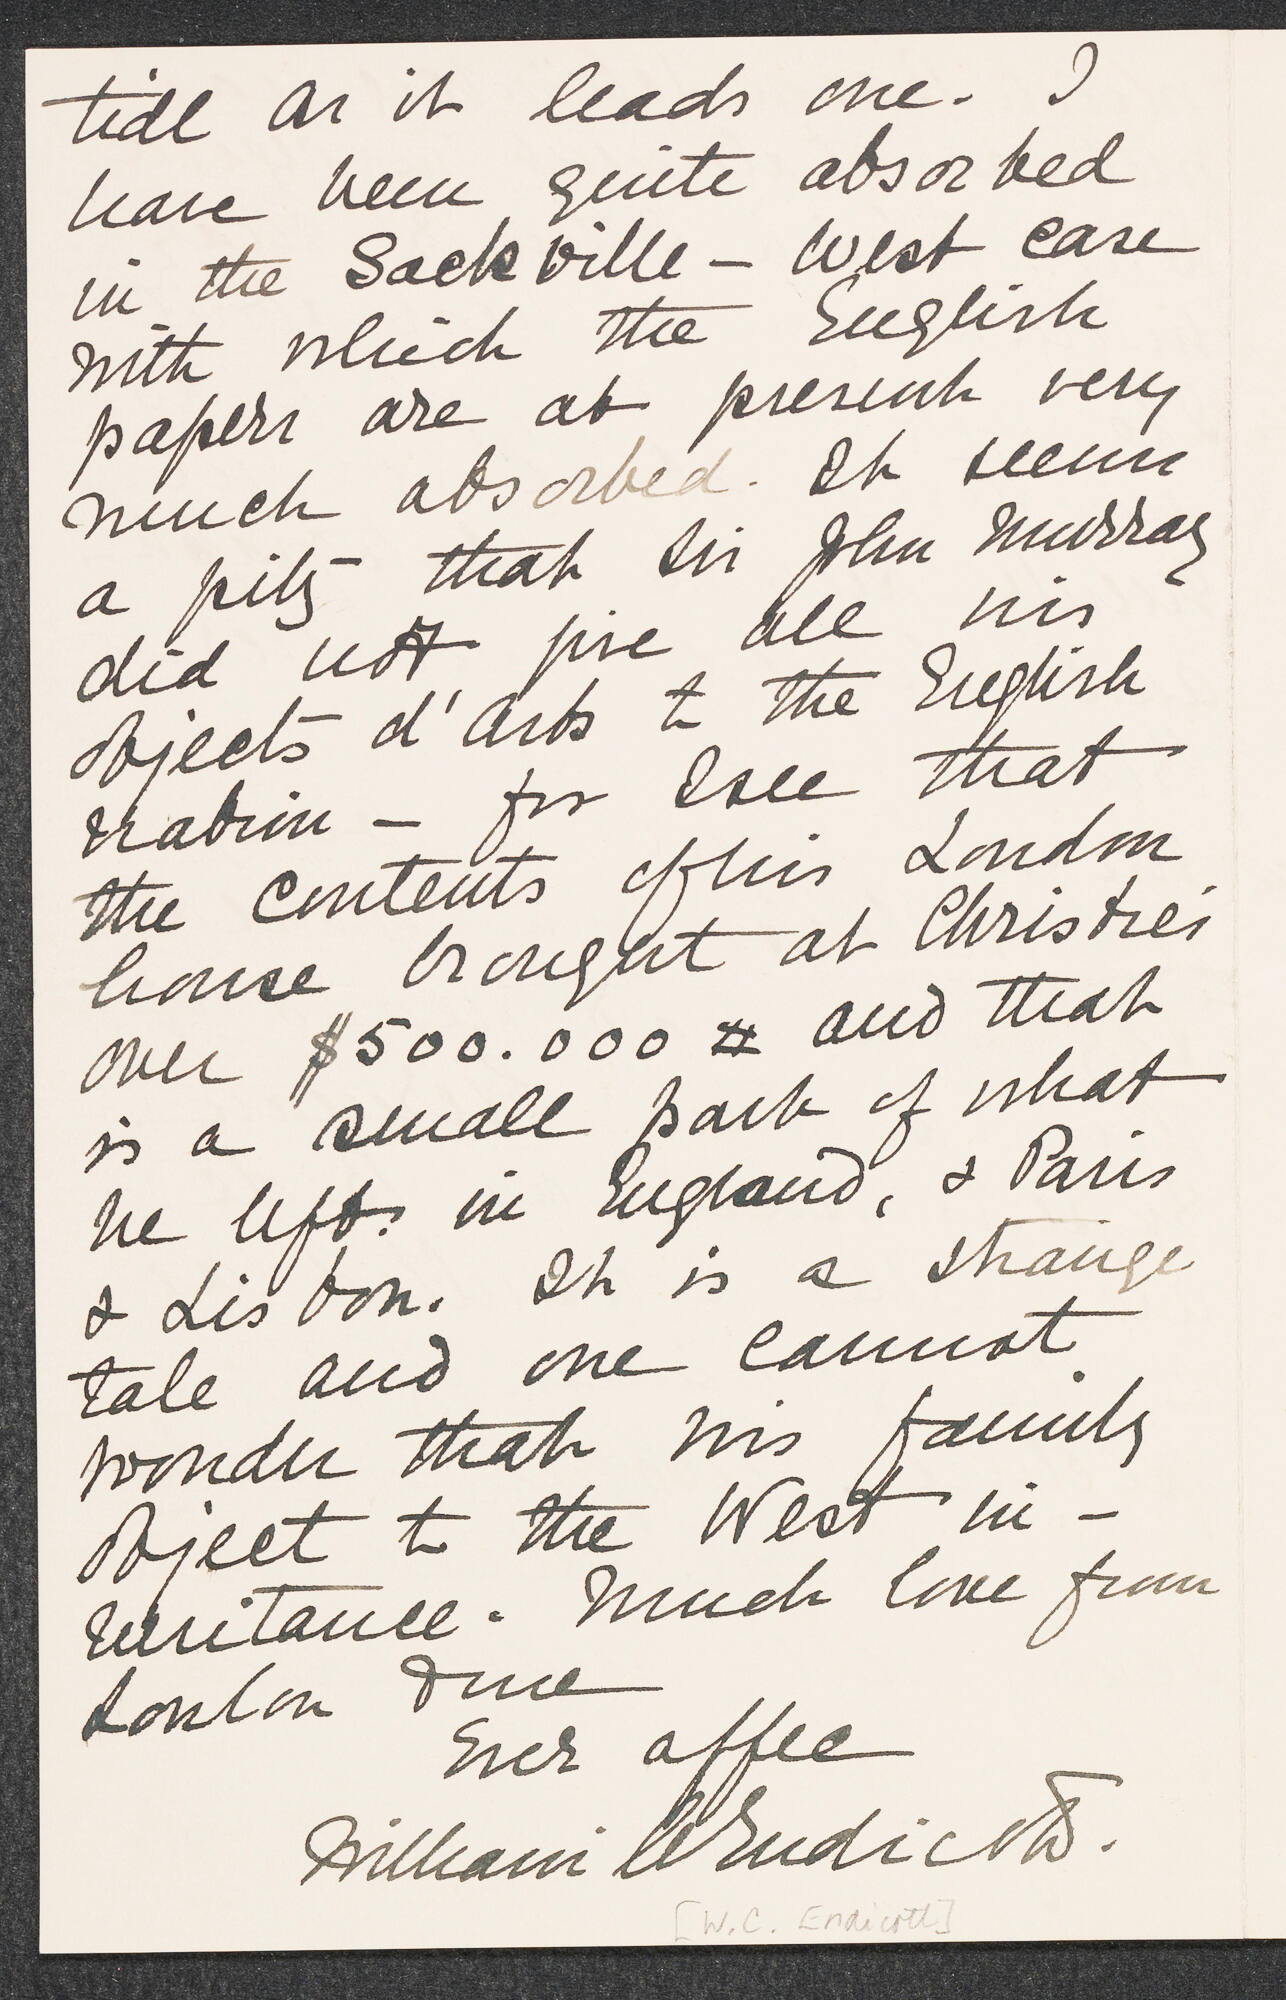 tide as it leads one. I
have been quite absorbed
in the Sackville - West case
with which the English
papers are at present very
much absorbed. It seems
a pity that Sir John Murray
did not give all his
objects d'arts to the English
nation - for I see that
the contents of his London
house brought at Christie's
over $500.000 and that
is a small part of what
he left in England, & Paris
& Lisbon. It is a strange
tale and one cannot
wonder that his family
object to the West in-
heritance. Much love from
London & me
Ever affec
William C Endicott.
[W.C. Endicott]